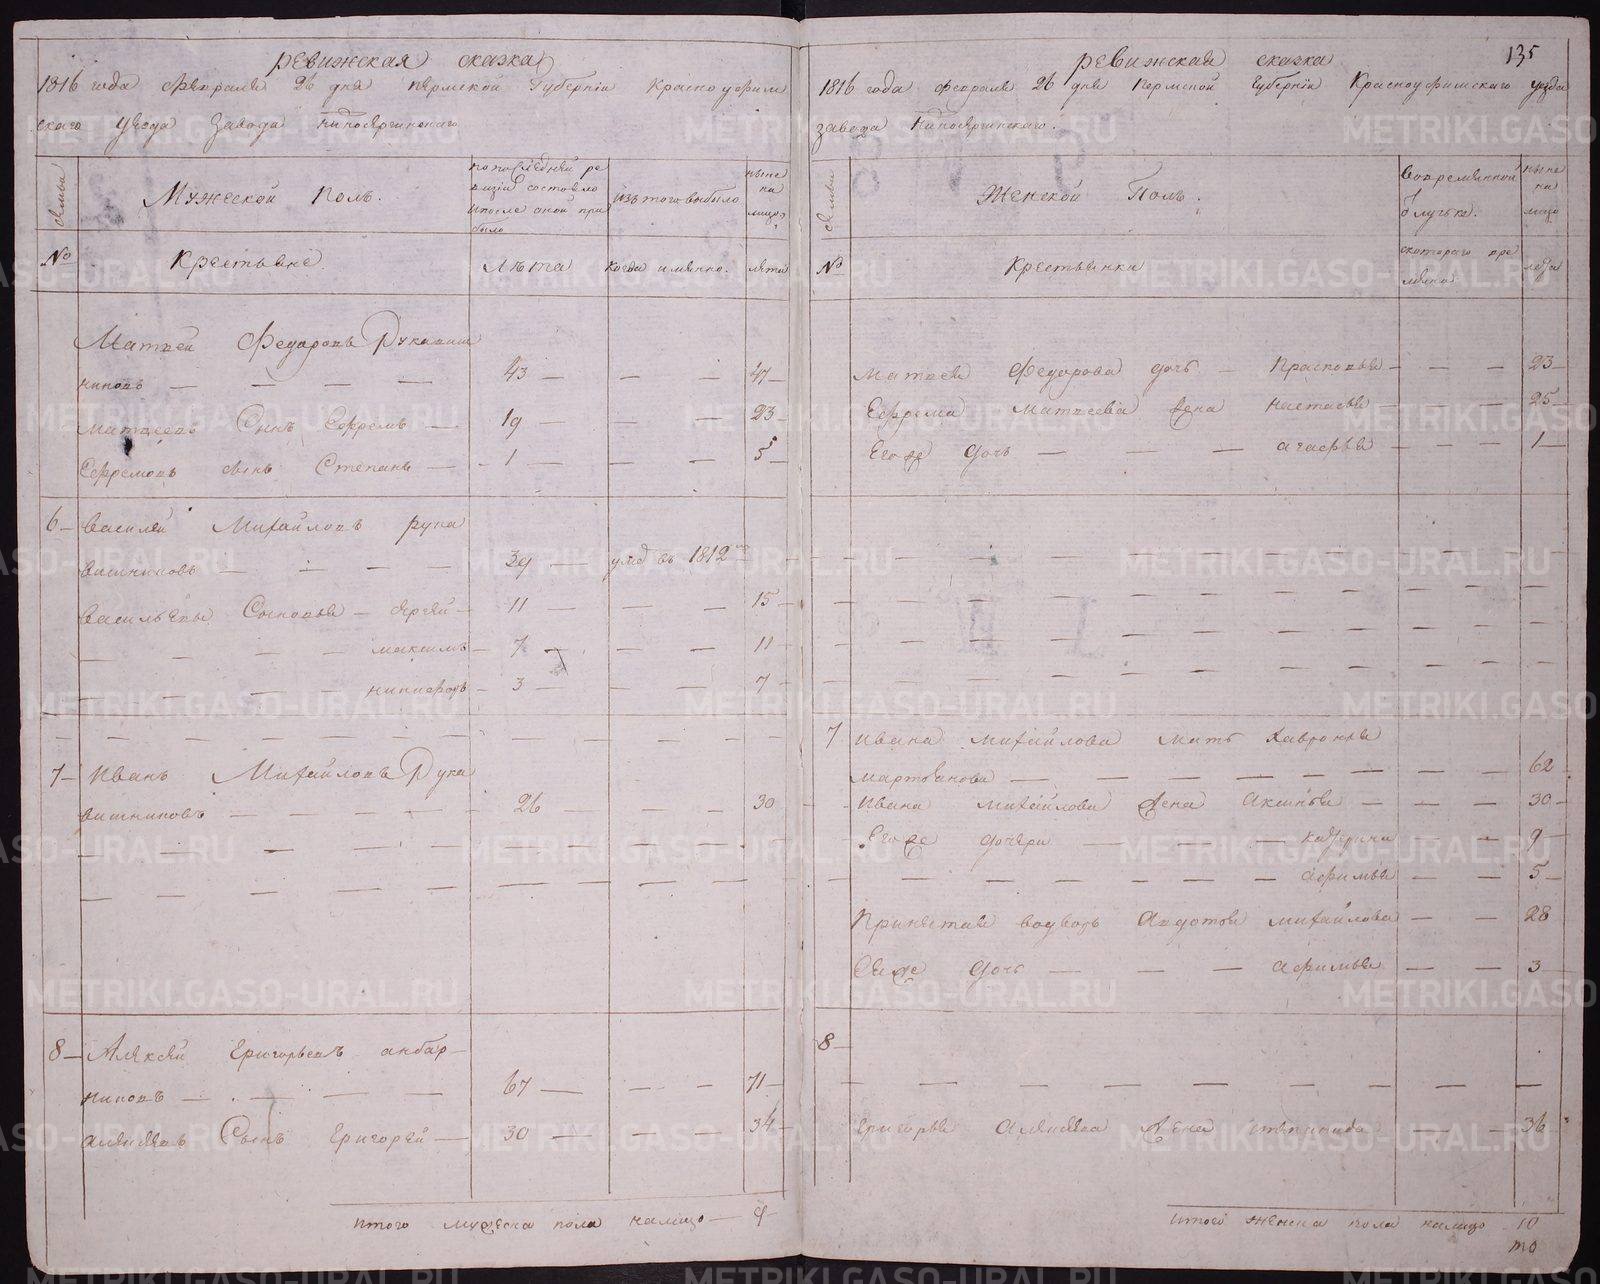 ревижская сказка
1816 года февраля 26 дня пермской Губернiи Красноуфим
скаго уезда завода
семьи
Мужеской Полъ.
по последней ре
визiи состояло
и после оной при
было
изъ того выбыло
ныне
на
лицо
№
Крестьяне
Лѣта
когда имянно.
лета
Матвей Федоровъ Рукавиш
никовъ — — — — 43 — — — 47 —
Матвеевъ Сынъ Ефремъ — 19 — — 23 —
Ефремовъ сынъ Степанъ — 1 — — — 5 —
6 — Василей Михайловъ рука
вишниковъ — — — — 39 — умре въ 1812
Васильевы Сыновья — Сергей — 11 — — — 15 —
— — — — максимъ — 7 — — — 11 —
— — — — никифоръ — 3 — — — 7 —
7 — Иванъ Михайловъ Рука
вишниковъ — — — — — 26 — — — 30
8 — Алексей Григорьевъ анбар —
никовъ — — — — 67 — — — 71 —
алексеевъ Сынъ Григорей — 30 — — — 34 —
итого мужеска пола налицо — 9 —
135
ревижская сказка
1816 года февраля 26 дня Пермской Губернiи Красноуфимскаго уезда
завода
семьи
Женской Полъ.
вовременной
отлучке.
ныне
на
лицо
№
Крестьянки
скотораго вре
мяни
лета
Матвея Федорова дочь — Прасковья — — — 23 —
Ефрема Матвеева жена настасья — — — 25 —
Его же дочь — — — агафья — — — 1 —
7 Ивана михайлова мать Хавронья
мартьянова — — — — — — 62 —
Ивана михайлова жена Аксинья — — — 30 —
Его же дочери — — — катерина — — — 9 —
— — — — — — — афимья — — — 5 —
Принятая водворъ Авдотья михайлова — — — 28
Ея же дочь — — — афимья — — — 3 —
8 —
Григорья алексеева жена степанида — — 36 —
итого женска пола налицо — 10
то
METRIKI.GASO-URAL.RU